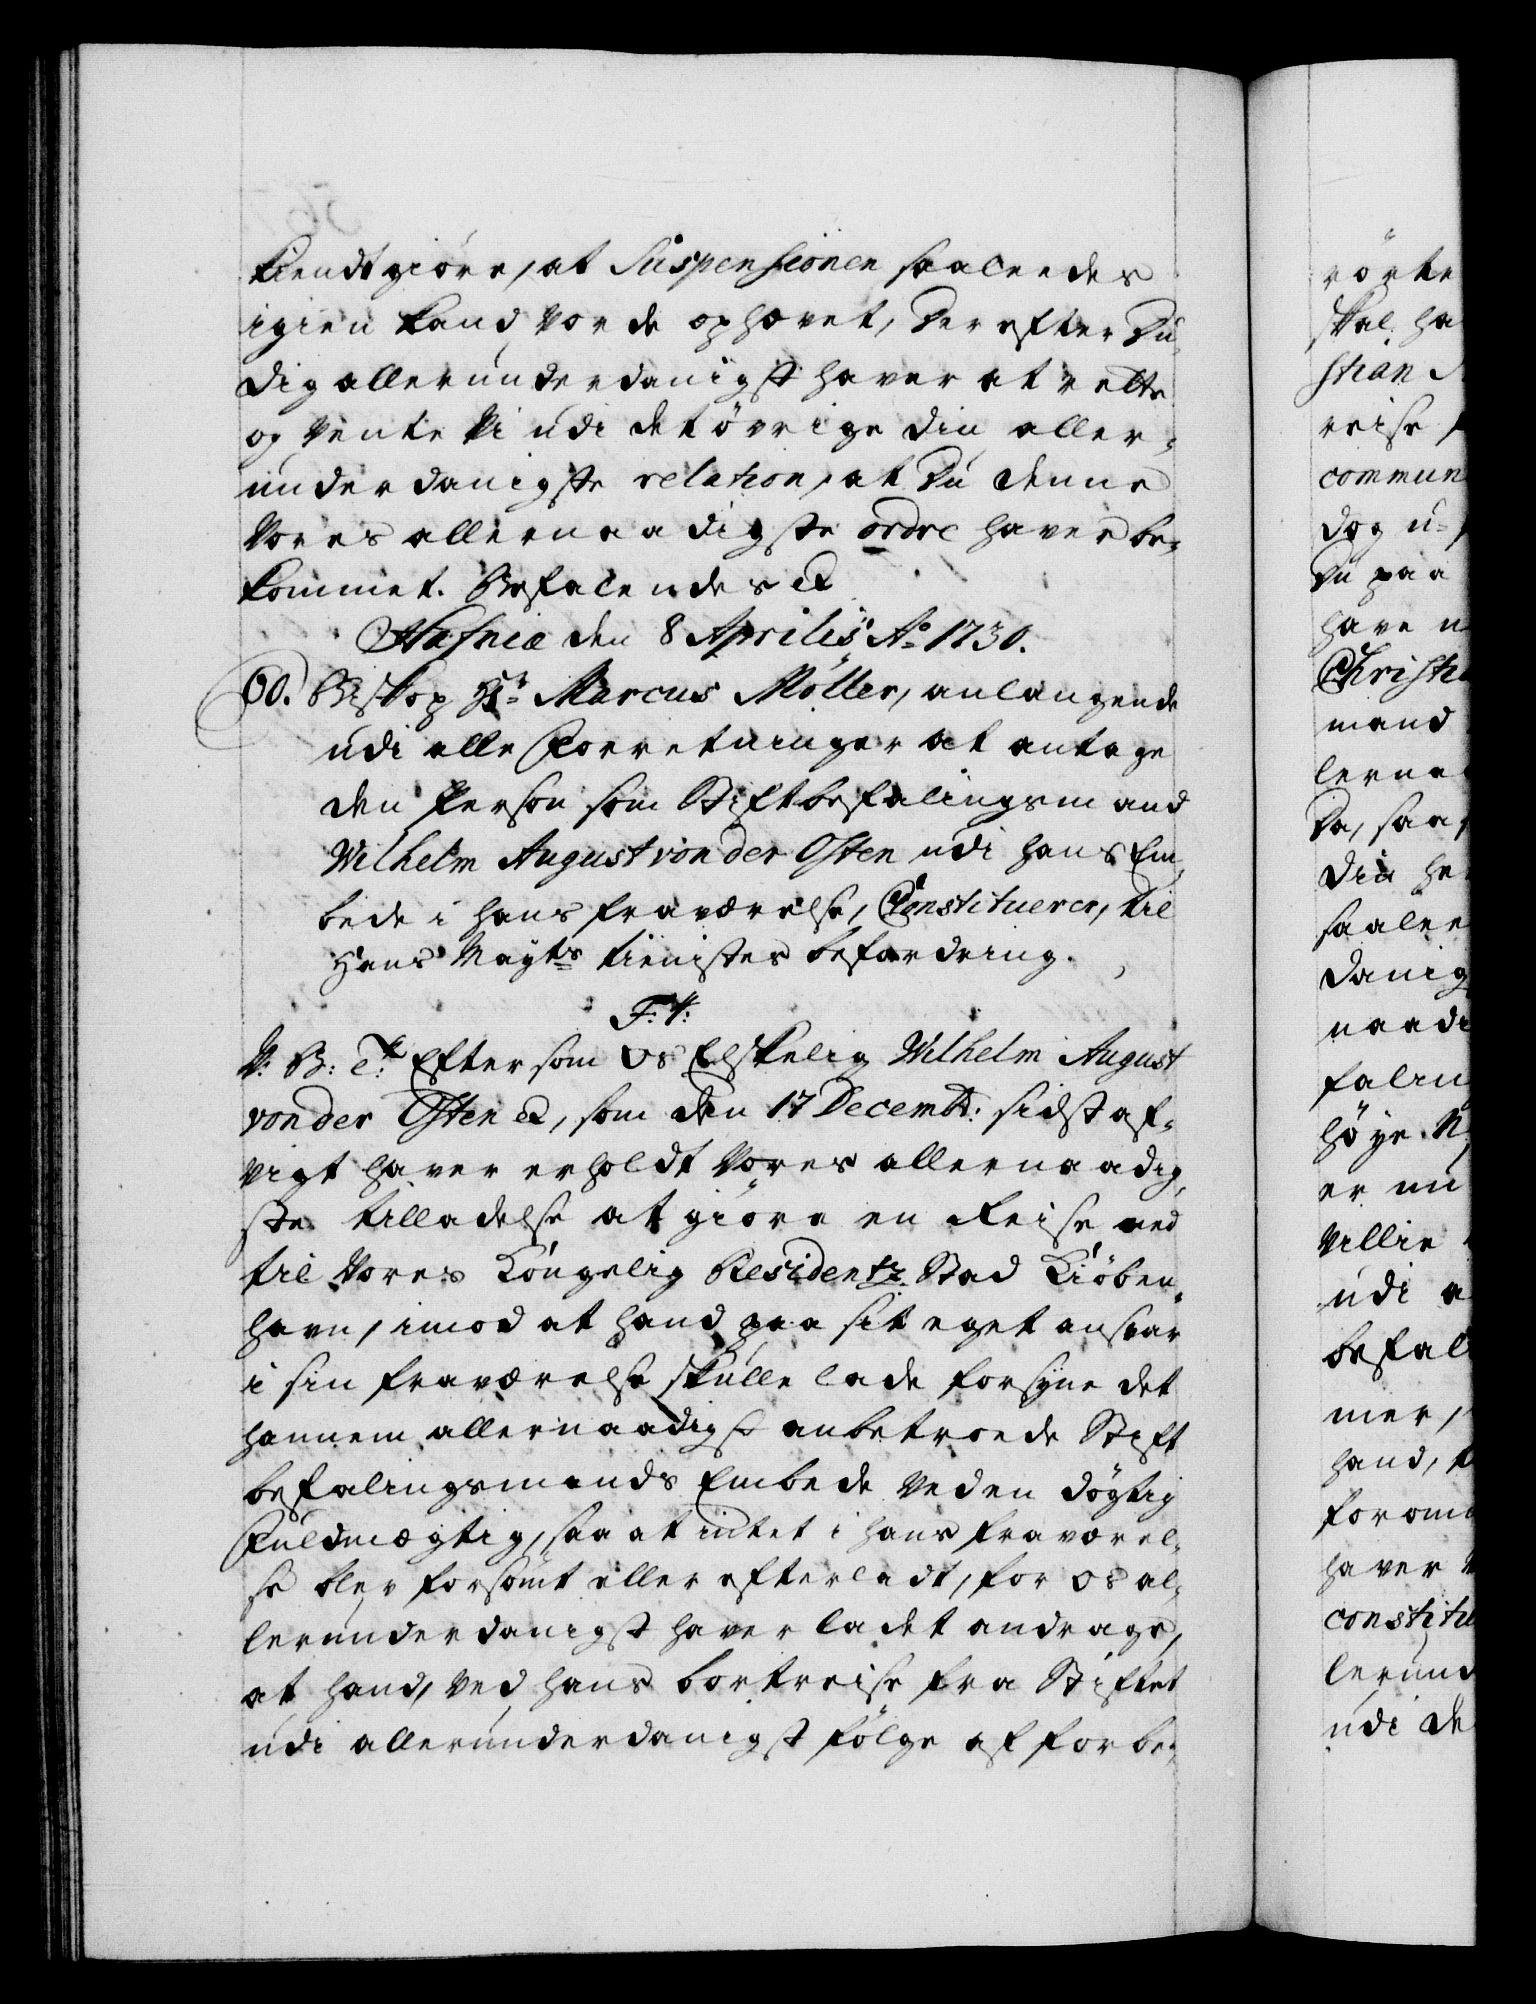 kiendtgiöre, at Suspensionen saaleedes
igien kand vorde ophævet, Der efter Du
dig allerunderdanigst haver at rette
og Vente Vi udi det övrige din aller¬
underdanigste relation, at Du denne
Vores allernaadigste ordre haver be¬
kommet. Befalendes etc
Hafniæ den 8 Aprilis Ao 1730.
60. Biskop Hr Marcus Möller, anlangende
udi alle Forretninger at antage
den Person som Stiftbefalingsmand
Wilhelm August von der Osten udi hans Em¬
bede i hans fraværelse, Constituerer, til
Hans Mayts tienistes befordring.
F: 4:
V. B: C: Eftersom Os Elskelig Wilhelm August
von der Osten etc, som den 17 Decembr: sidst af¬
vigt haver erholdt Vores allernaadig¬
ste tilladelse at giöre en Reise ned
til Vores Kongelig Residentz Stad Kiöben¬
havn, imod at hand paa sit eget ansvar
i sin fraværelse skulle lade forsyne det
hannem allernaadigst anbetroede Stift
befalingsmands Embede ved en dögtig
Fuldmægtig, saa at intet i hans fraværel¬
se blev forsömt eller efterladt, for os al¬
lerunderdanigst haver ladet andrage,
at hand, ved hans bortreise fra Stiftet
udi allerunderdanigst fölge af forbe¬
rörte
skal ha
stian
reise
commun
dog u¬
Du paa
have
Christi
mand
lerna
Da, saa
din he
saalee
danig
naadi
falin
höye
er nu
villie
udi a
befal
mer,
hand,
forom
haver
constitu
lerund
udi de